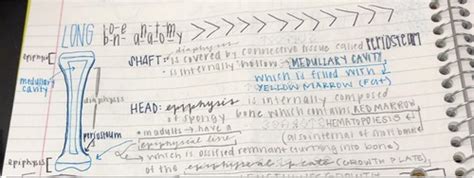 LONG bone anatomy
diaphysis
SHAFT: is covered by connective tissue called PERIOSTEUM
is internally hollow → MEDULLARY CAVITY,
which is filled with
YELLOW MARROW (FAT)
epiphysis
medullary
cavity
diaphysis
periosteum
epiphysis
HEAD: epiphysis is internally composed
of spongy bone which contains RED MARROW
HEMATOPOIESIS
adults have a
epiphyseal line
which is ossified remnant
of the epiphyseal plate (GROWTH PLATE),